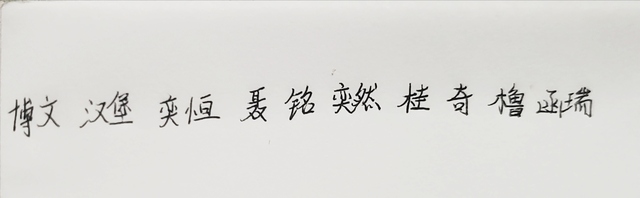 博文 汉堡 奕恒 聂 铭 奕然 桂 奇 橹 函瑞